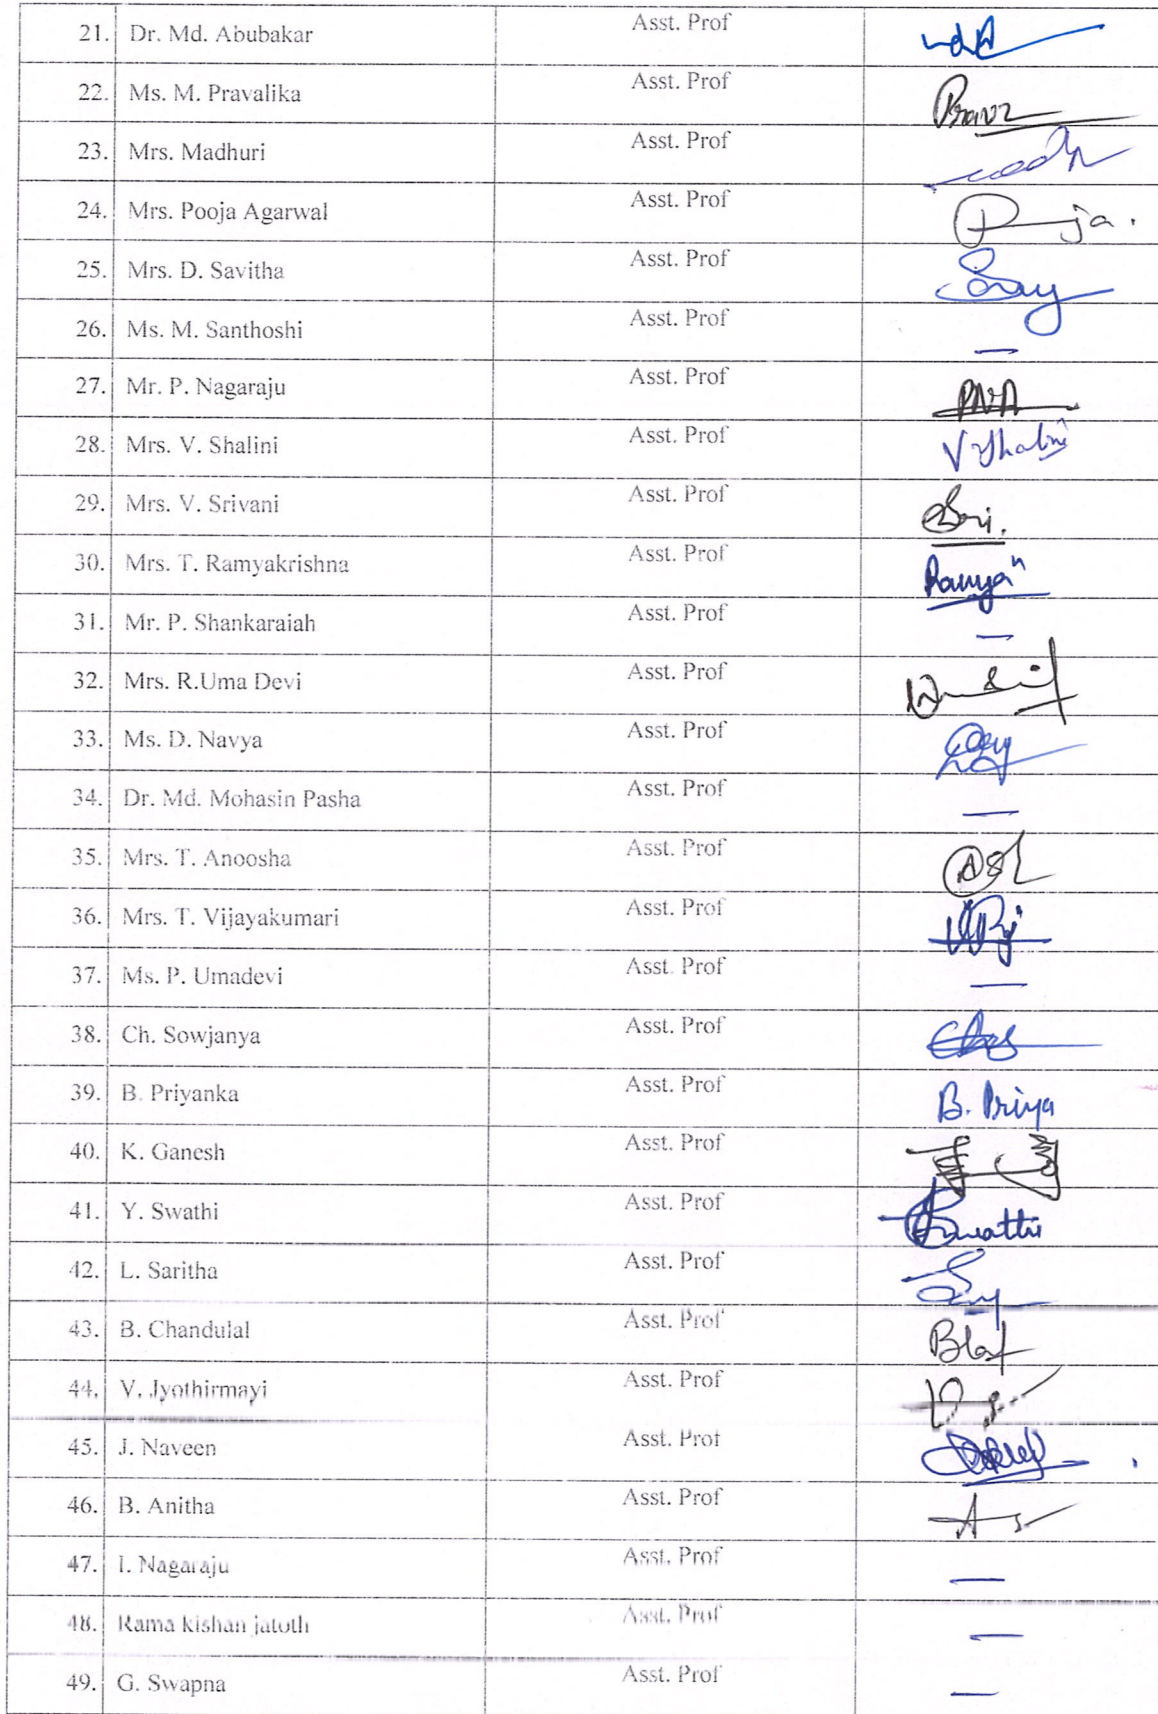 21. Dr. Md. Abubakar Asst. Prof
22. Ms. M. Pravalika Asst. Prof
23. Mrs. Madhuri Asst. Prof
24. Mrs. Pooja Agarwal Asst. Prof
25. Mrs. D. Savitha Asst. Prof
26. Ms. M. Santhoshi Asst. Prof —
27. Mr. P. Nagaraju Asst. Prof
28. Mrs. V. Shalini Asst. Prof V Shalini
29. Mrs. V. Srivani Asst. Prof Sri.
30. Mrs. T. Ramyakrishna Asst. Prof Ramya
31. Mr. P. Shankaraiah Asst. Prof —
32. Mrs. R.Uma Devi Asst. Prof
33. Ms. D. Navya Asst. Prof
34. Dr. Md. Mohasin Pasha Asst. Prof —
35. Mrs. T. Anoosha Asst. Prof
36. Mrs. T. Vijayakumari Asst. Prof
37. Ms. P. Umadevi Asst. Prof —
38. Ch. Sowjanya Asst. Prof
39. B. Priyanka Asst. Prof B. Priya
40. K. Ganesh Asst. Prof
41. Y. Swathi Asst. Prof Swathi
42. L. Saritha Asst. Prof
43. B. Chandulal Asst. Prof
44. V. Jyothirmayi Asst. Prof
45. J. Naveen Asst. Prof
46. B. Anitha Asst. Prof
47. I. Nagaraju Asst. Prof —
48. Rama kishan jatoth Asst. Prof —
49. G. Swapna Asst. Prof —